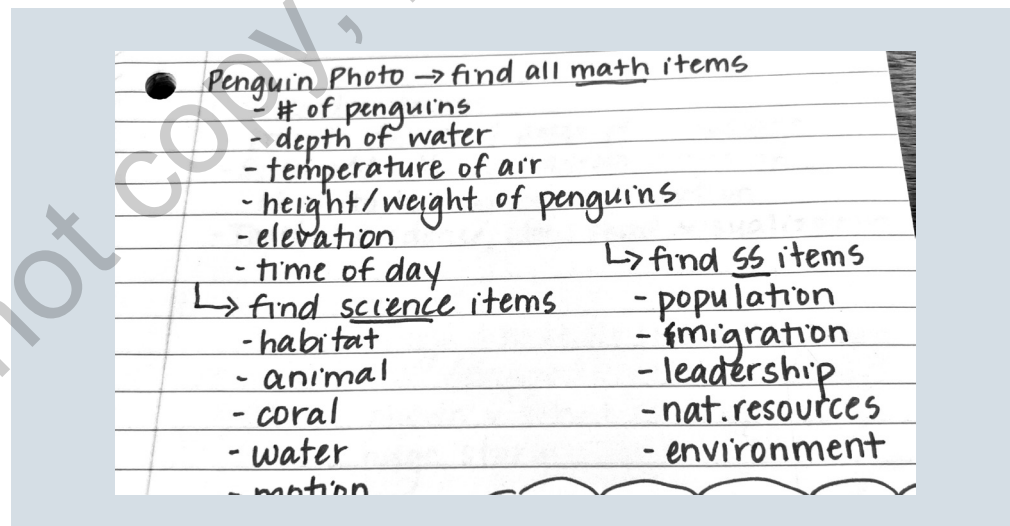 Penguin Photo → find all math items
- # of penguins
- depth of water
- temperature of air
- height/weight of penguins
- elevation
- time of day
↳ find science items
- habitat
- animal
- coral
- water
- motion
↳ find SS items
- population
- migration
- leadership
- nat. resources
- environment
not copy,